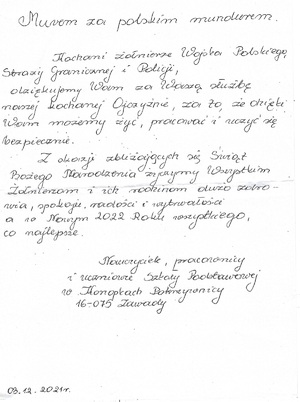 Murem za polskim mundurem.
Kochani żołnierze Wojska Polskiego,
Straży Granicznej i Policji,
dziękujemy Wam za Waszą służbę
naszej kochanej Ojczyźnie, za to, że dzięki
Wam możemy żyć, pracować i uczyć się
bezpiecznie.
Z okazji zbliżających się Świąt
Bożego Narodzenia życzymy Wszystkim
Żołnierzom i ich rodzinom dużo zdro-
wia, spokoju, radości i wytrwałości
a w Nowym 2022 Roku wszystkiego,
co najlepsze.
Nauczyciele, pracownicy
i uczniowie Szkoły Podstawowej
w Konopkach Pokrzywnicy
16-075 Zawady
03.12.2021r.